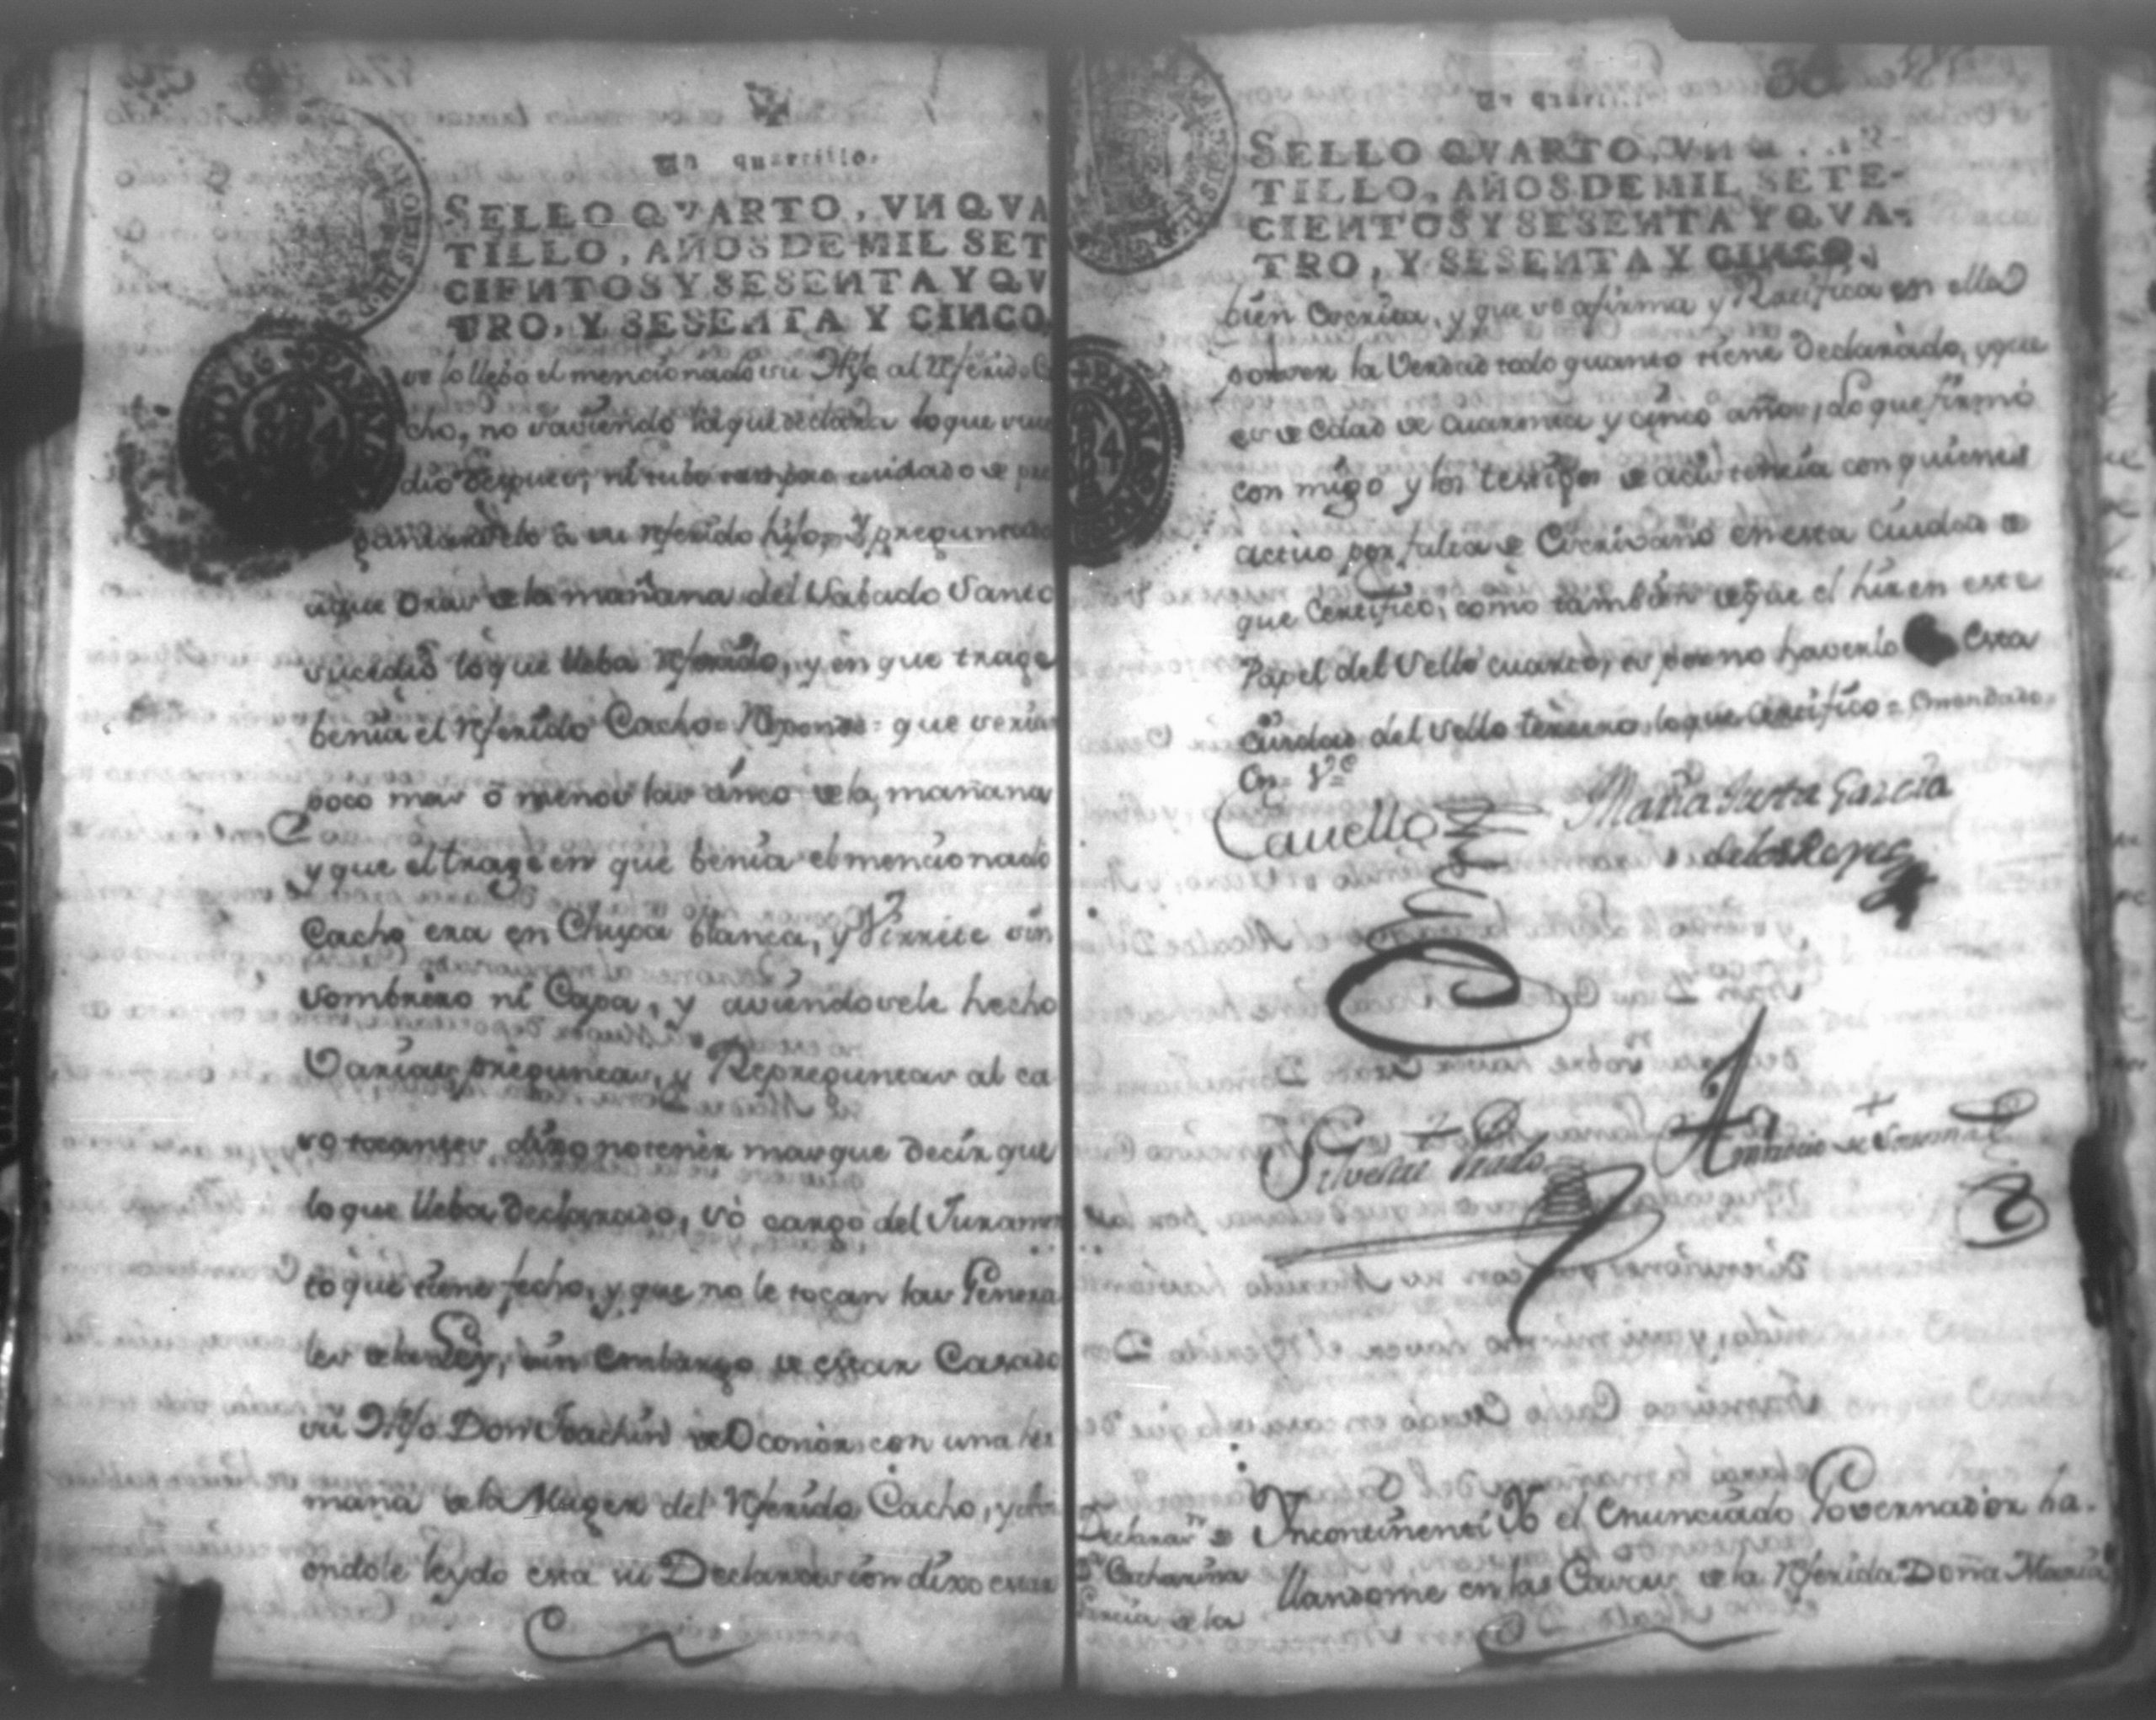 Un quartillo.
SELLO QVARTO, VN QVA
TILLO, AÑOS DE MIL SET
CIENTOS Y SESENTA Y QV
TRO, Y SESENTA Y CINCO,
se lo llebó el mencionado su Hijo al referido C
cho, no saviendo la que declara lo que suce
dio despues, ni tubo tampoco cuidado de pre
guntarselo a su referido hijo, Y preguntada
aque oras de la mañana del Savado Santo
sucedió lo que lleba referido, y en que trage
benia el referido Cacho Responde que serian
poco mas o menos las cinco de la mañana
y que el trage en que benia el mencionado
Cacho era en Chupa blanca, y Virrete sin
sombrero ni Capa, y aviendosele hecho
Varias preguntas, y Repreguntas al ca
so tocantes, dixo no tener mas que decir que
lo que lleba declarado, so cargo del Juramen
to que tiene fecho, y que no le tocan las Genera
les de la Ley, sin embargo de estar Casado
su Hijo Don Joachin de Oconor con una her
mana de la Muger del referido Cacho, y
endole leydo esta su Declaracion dixo estar
Un quartillo
SELLO QVARTO, VN Q
TILLO, AÑOS DE MIL SETE-
CIENTOS Y SESENTA Y QVA-
TRO, Y SESENTA Y CINCO,
bien escrita, y que se afirma y Ratifica en ella
por ser la Verdad todo quanto tiene declarado, y que
es de edad de cuarenta y cinco años, lo que firmó
con migo y los testigos de asistencia con quienes
actuo por falta de Escrivano en esta ciudad de
que Certifico, como tambien de que el hir en este
Papel del Sello cuarto, es por no haverlo Esta
Ciudad del Sello tercero, lo que Certifico = Enmendado,
En = Ve
Cavello
Maria Justa Garcia
de los Reyes
Silvestre Prado
Antonio de
Declaran de
Da Catharina
Garcia de la
Yncontinenti Yo el enunciado Governador ha-
llandome en las Casas de la referida Doña Maria